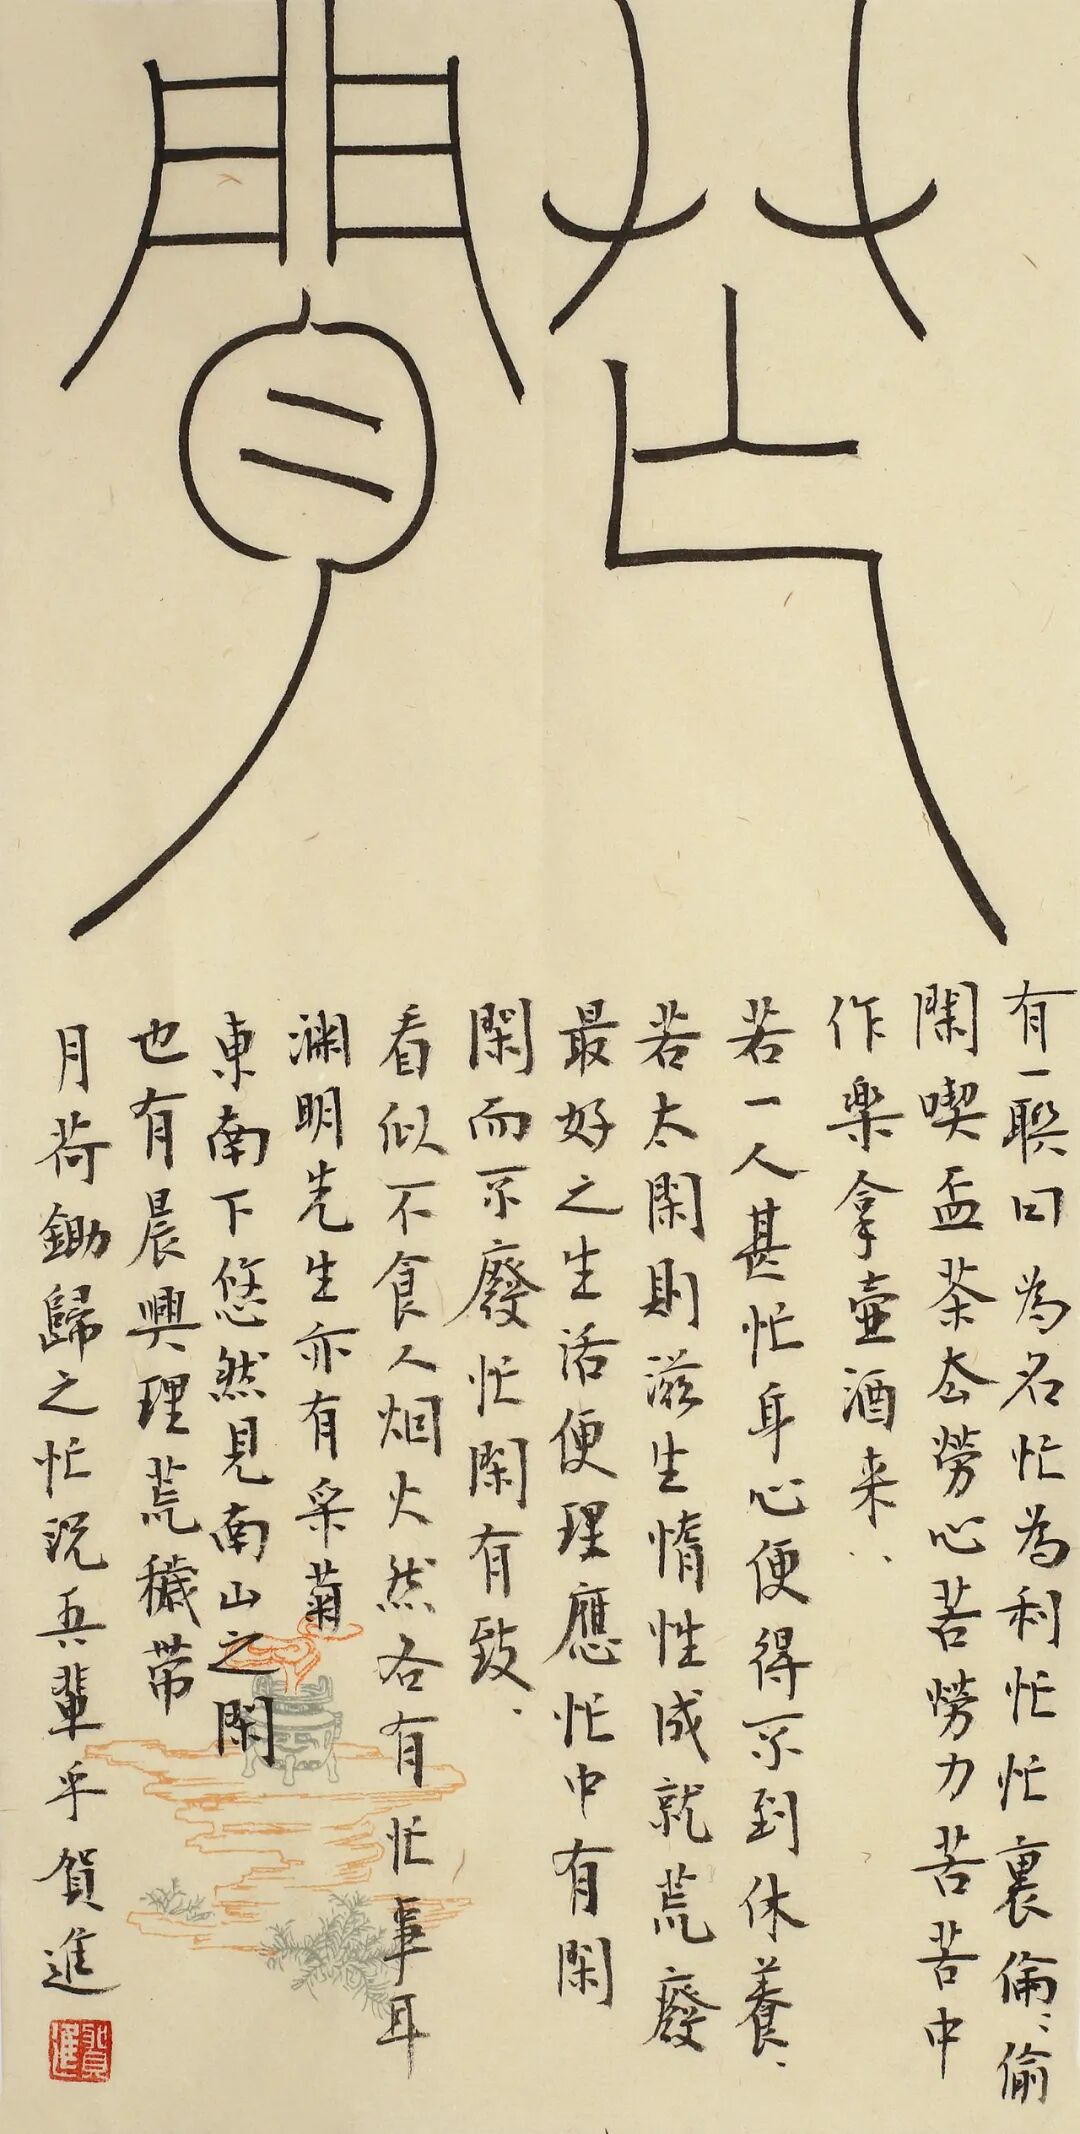 芒
閒
有一聯曰為名忙為利忙忙裏倫偷
閑喫盃茶厺勞心苦勞力苦苦中
作樂拿壺酒来
若一人甚忙身心便得不到休養
若太閑則滋生惰性成就荒廢
最好之生活便理應忙中有閑
閑而不廢忙閑有致
看似不食人烟火然各有忙事耳
渊明先生亦有采菊
東南下悠然見南山之閑
也有晨興理荒穢帶
月荷鋤歸之忙況吾輩乎賀進
賀進